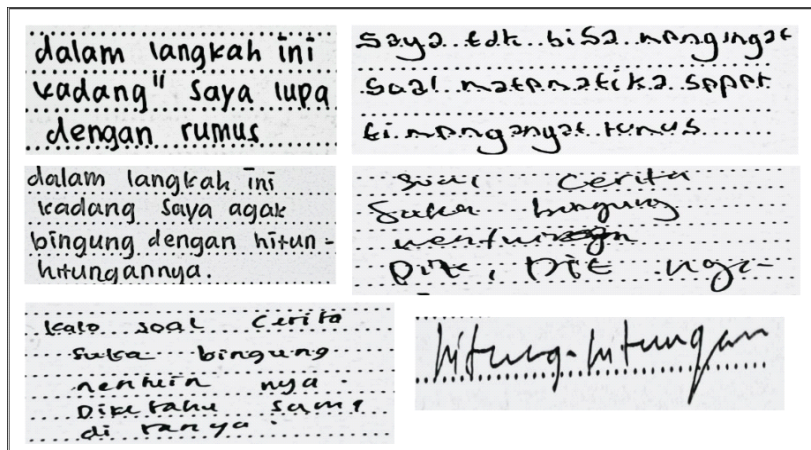 dalam langkah ini
kadang" saya lupa
dengan rumus
saya tdk bisa mengingat
soal matematika seper
ti mengingat rumus
dalam langkah ini
kadang saya agak
bingung dengan hitun-
hitungannya.
soal cerita
suka bingung
Dik, Dit nya-
kalo soal cerita
suka bingung
nentuin nya
Diketahui sama
di tanya
hitung-hitungan